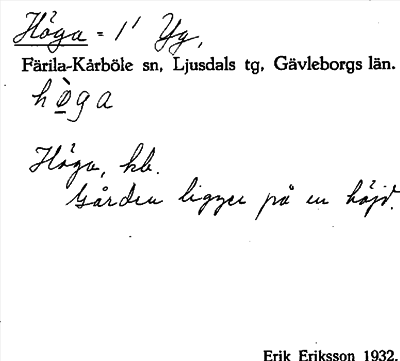 Höga - 1' Yg,
Färila-Kårböle sn, Ljusdals tg, Gävleborgs län.
hø̱̀ga
Höga, kb.
Gården ligger på en höjd.
Erik Eriksson 1932.